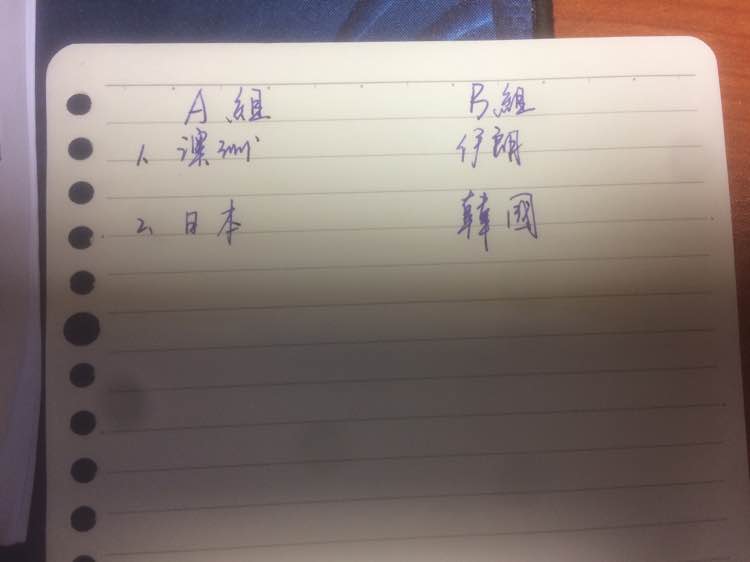 A組 B組
1. 澳洲 伊朗
2. 日本 韓國